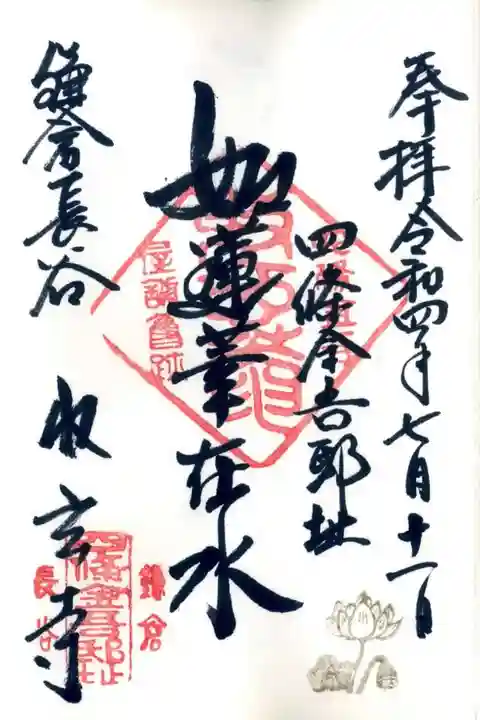 奉拝令和四年七月十一日
四條金吾邸址
如蓮華在水
鎌倉長谷 収玄寺
屋舗舊跡
鎌倉
長谷
四條金吾邸址